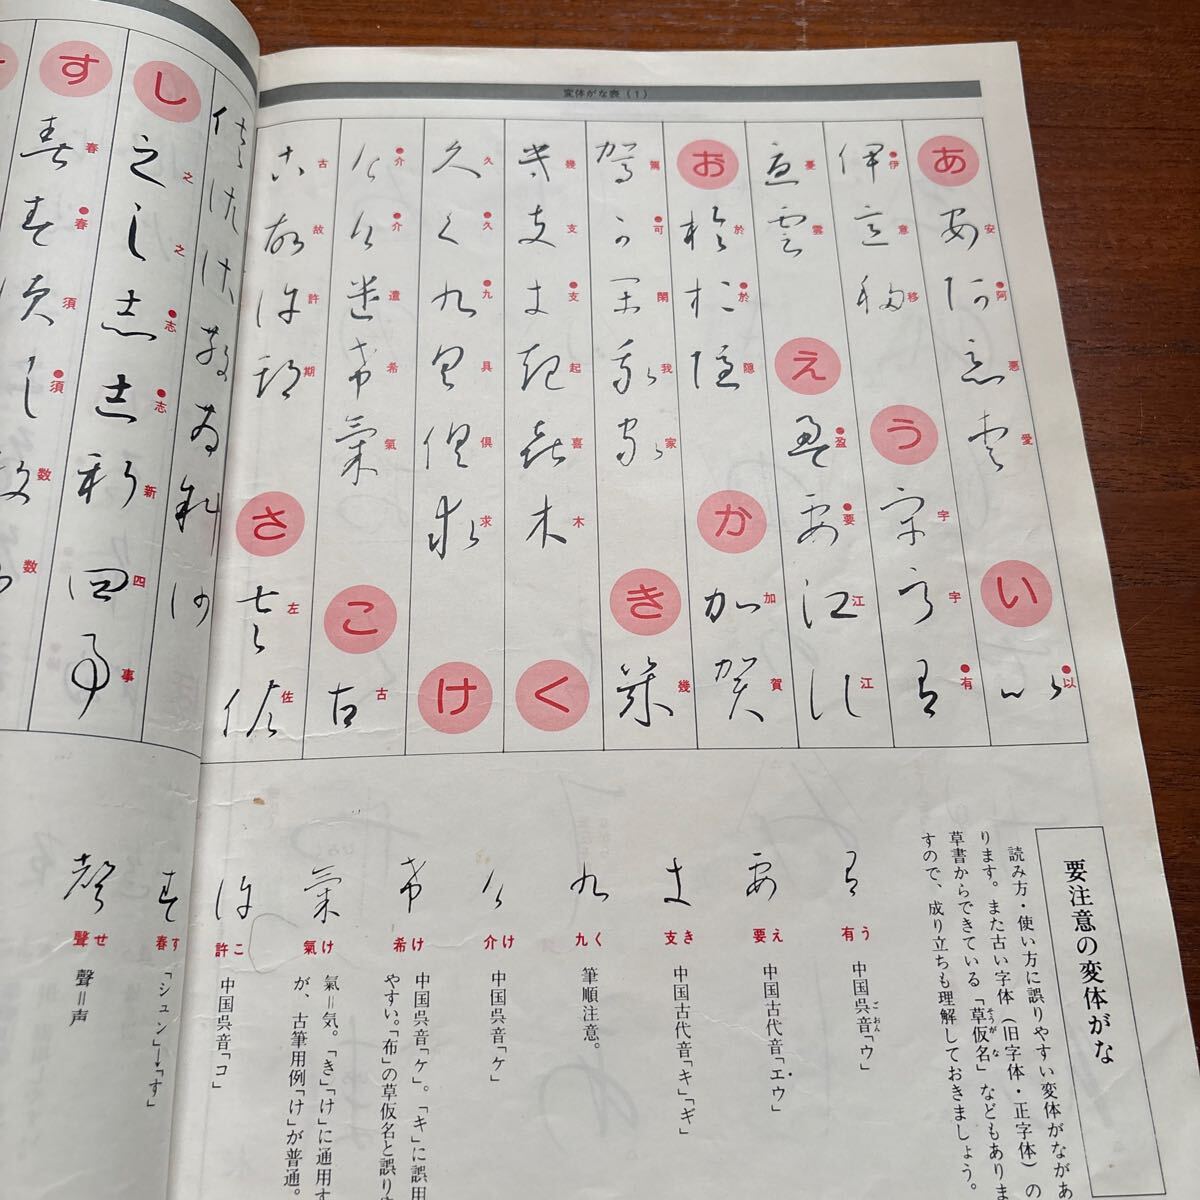 変体がな表（1）
あ
安
阿
悪
愛
い
以
伊
意
移
う
宇
宇
有
憂
雲
え
盈
要
江
江
お
於
於
隠
か
加
賀
可
閑
我
家
き
幾
幾
支
支
起
喜
木
く
久
久
九
具
倶
求
け
介
介
遣
希
氣
こ
古
古
故
許
期
さ
左
佐
し
之
之
志
志
新
四
事
す
春
春
須
須
数
数
要注意の変体がな
読み方・使い方に誤りやすい変体がながあ
ります。また古い字体（旧字体・正字体）の
草書からできている「草仮名」などもありま
すので、成り立ちも理解しておきましょう。
そうがな
う
有
中国呉音「ウ」
ごおん
え
要
中国古代音「エ・ウ」
き
支
中国古代音「キ」「ギ」
く
九
筆順注意。
け
介
中国呉音「ケ」
け
希
中国呉音「ケ」。「キ」に誤用
やすい。「布」の草仮名と誤り
け
氣
氣＝気。「き」「け」に通用す
が、古筆用例「け」が普通。
こ
許
中国呉音「コ」
す
春
「シュン」→「す」
せ
聲
聲＝声